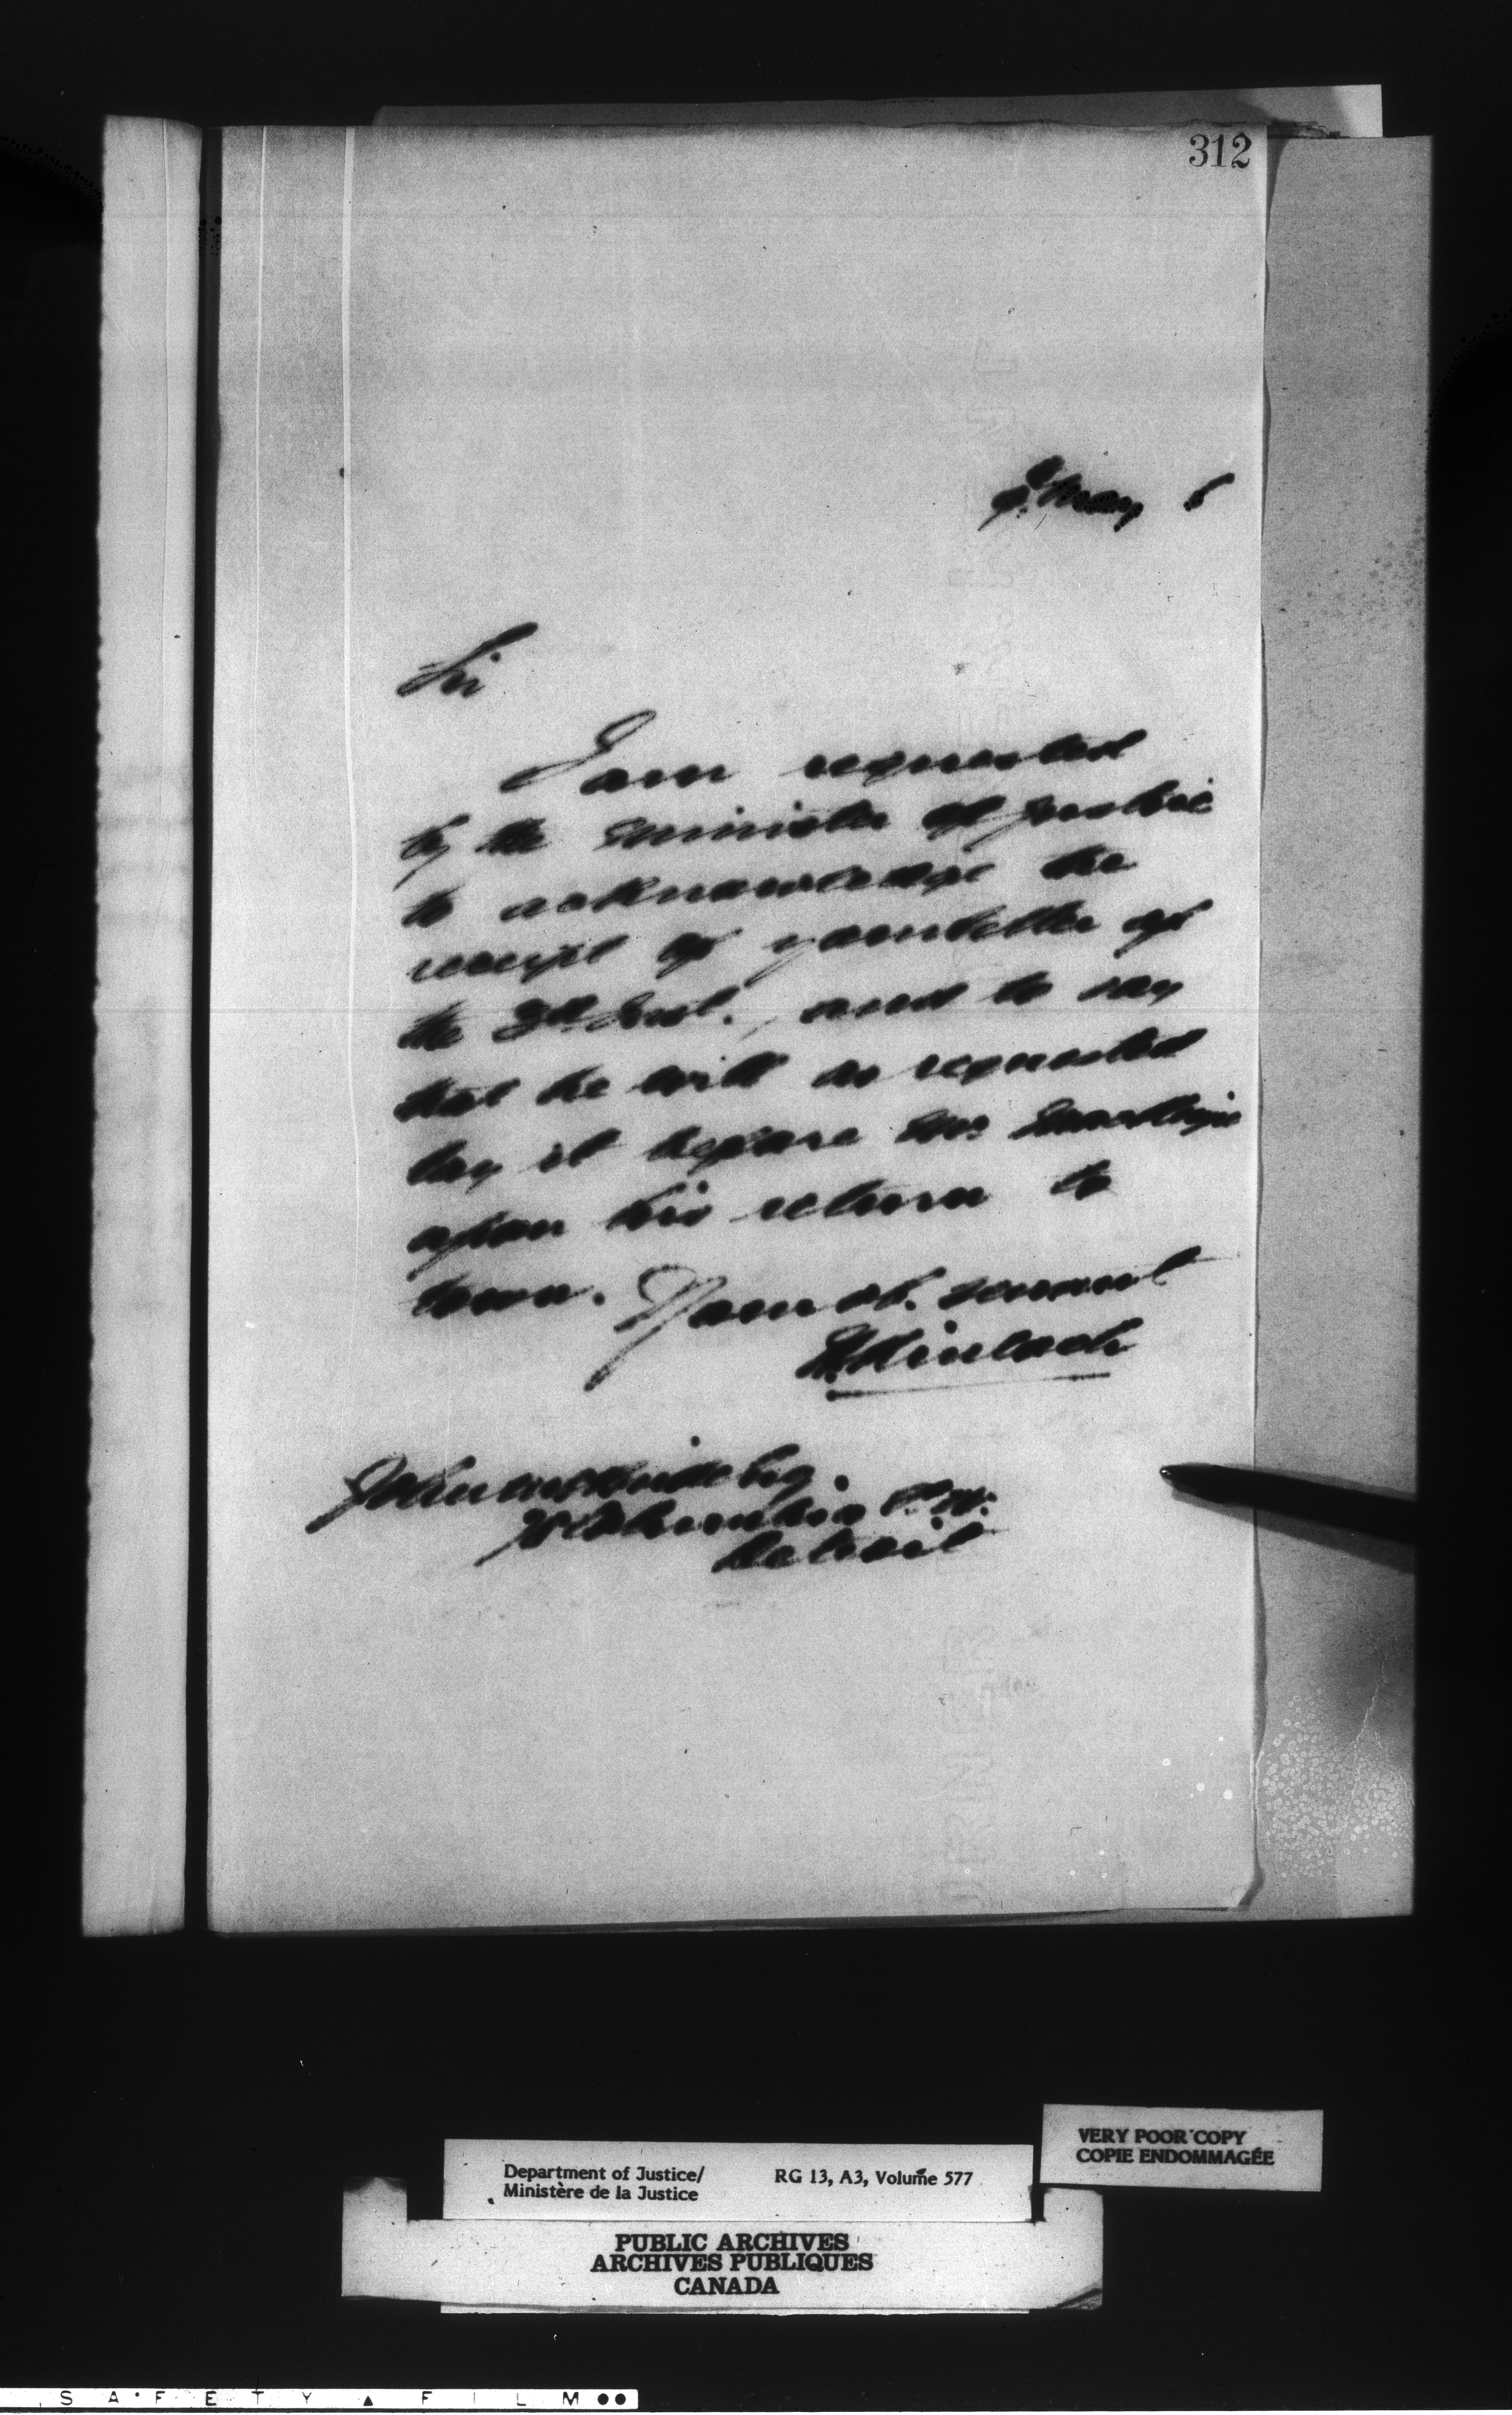 312
May 6
Sir
I am requested
by the Minister of Justice
to acknowledge the
receipt of your letter of
the 3rd Inst., and to say
that he will as requested
lay it before Mr.
upon his return to
town. Your ob. servant
John Esq.
Columbia St. W.
Detroit
VERY POOR COPY
COPIE ENDOMMAGÉE
Department of Justice/ RG 13, A3, Volume 577
Ministère de la Justice
PUBLIC ARCHIVES
ARCHIVES PUBLIQUES
CANADA
SAFETY FILM